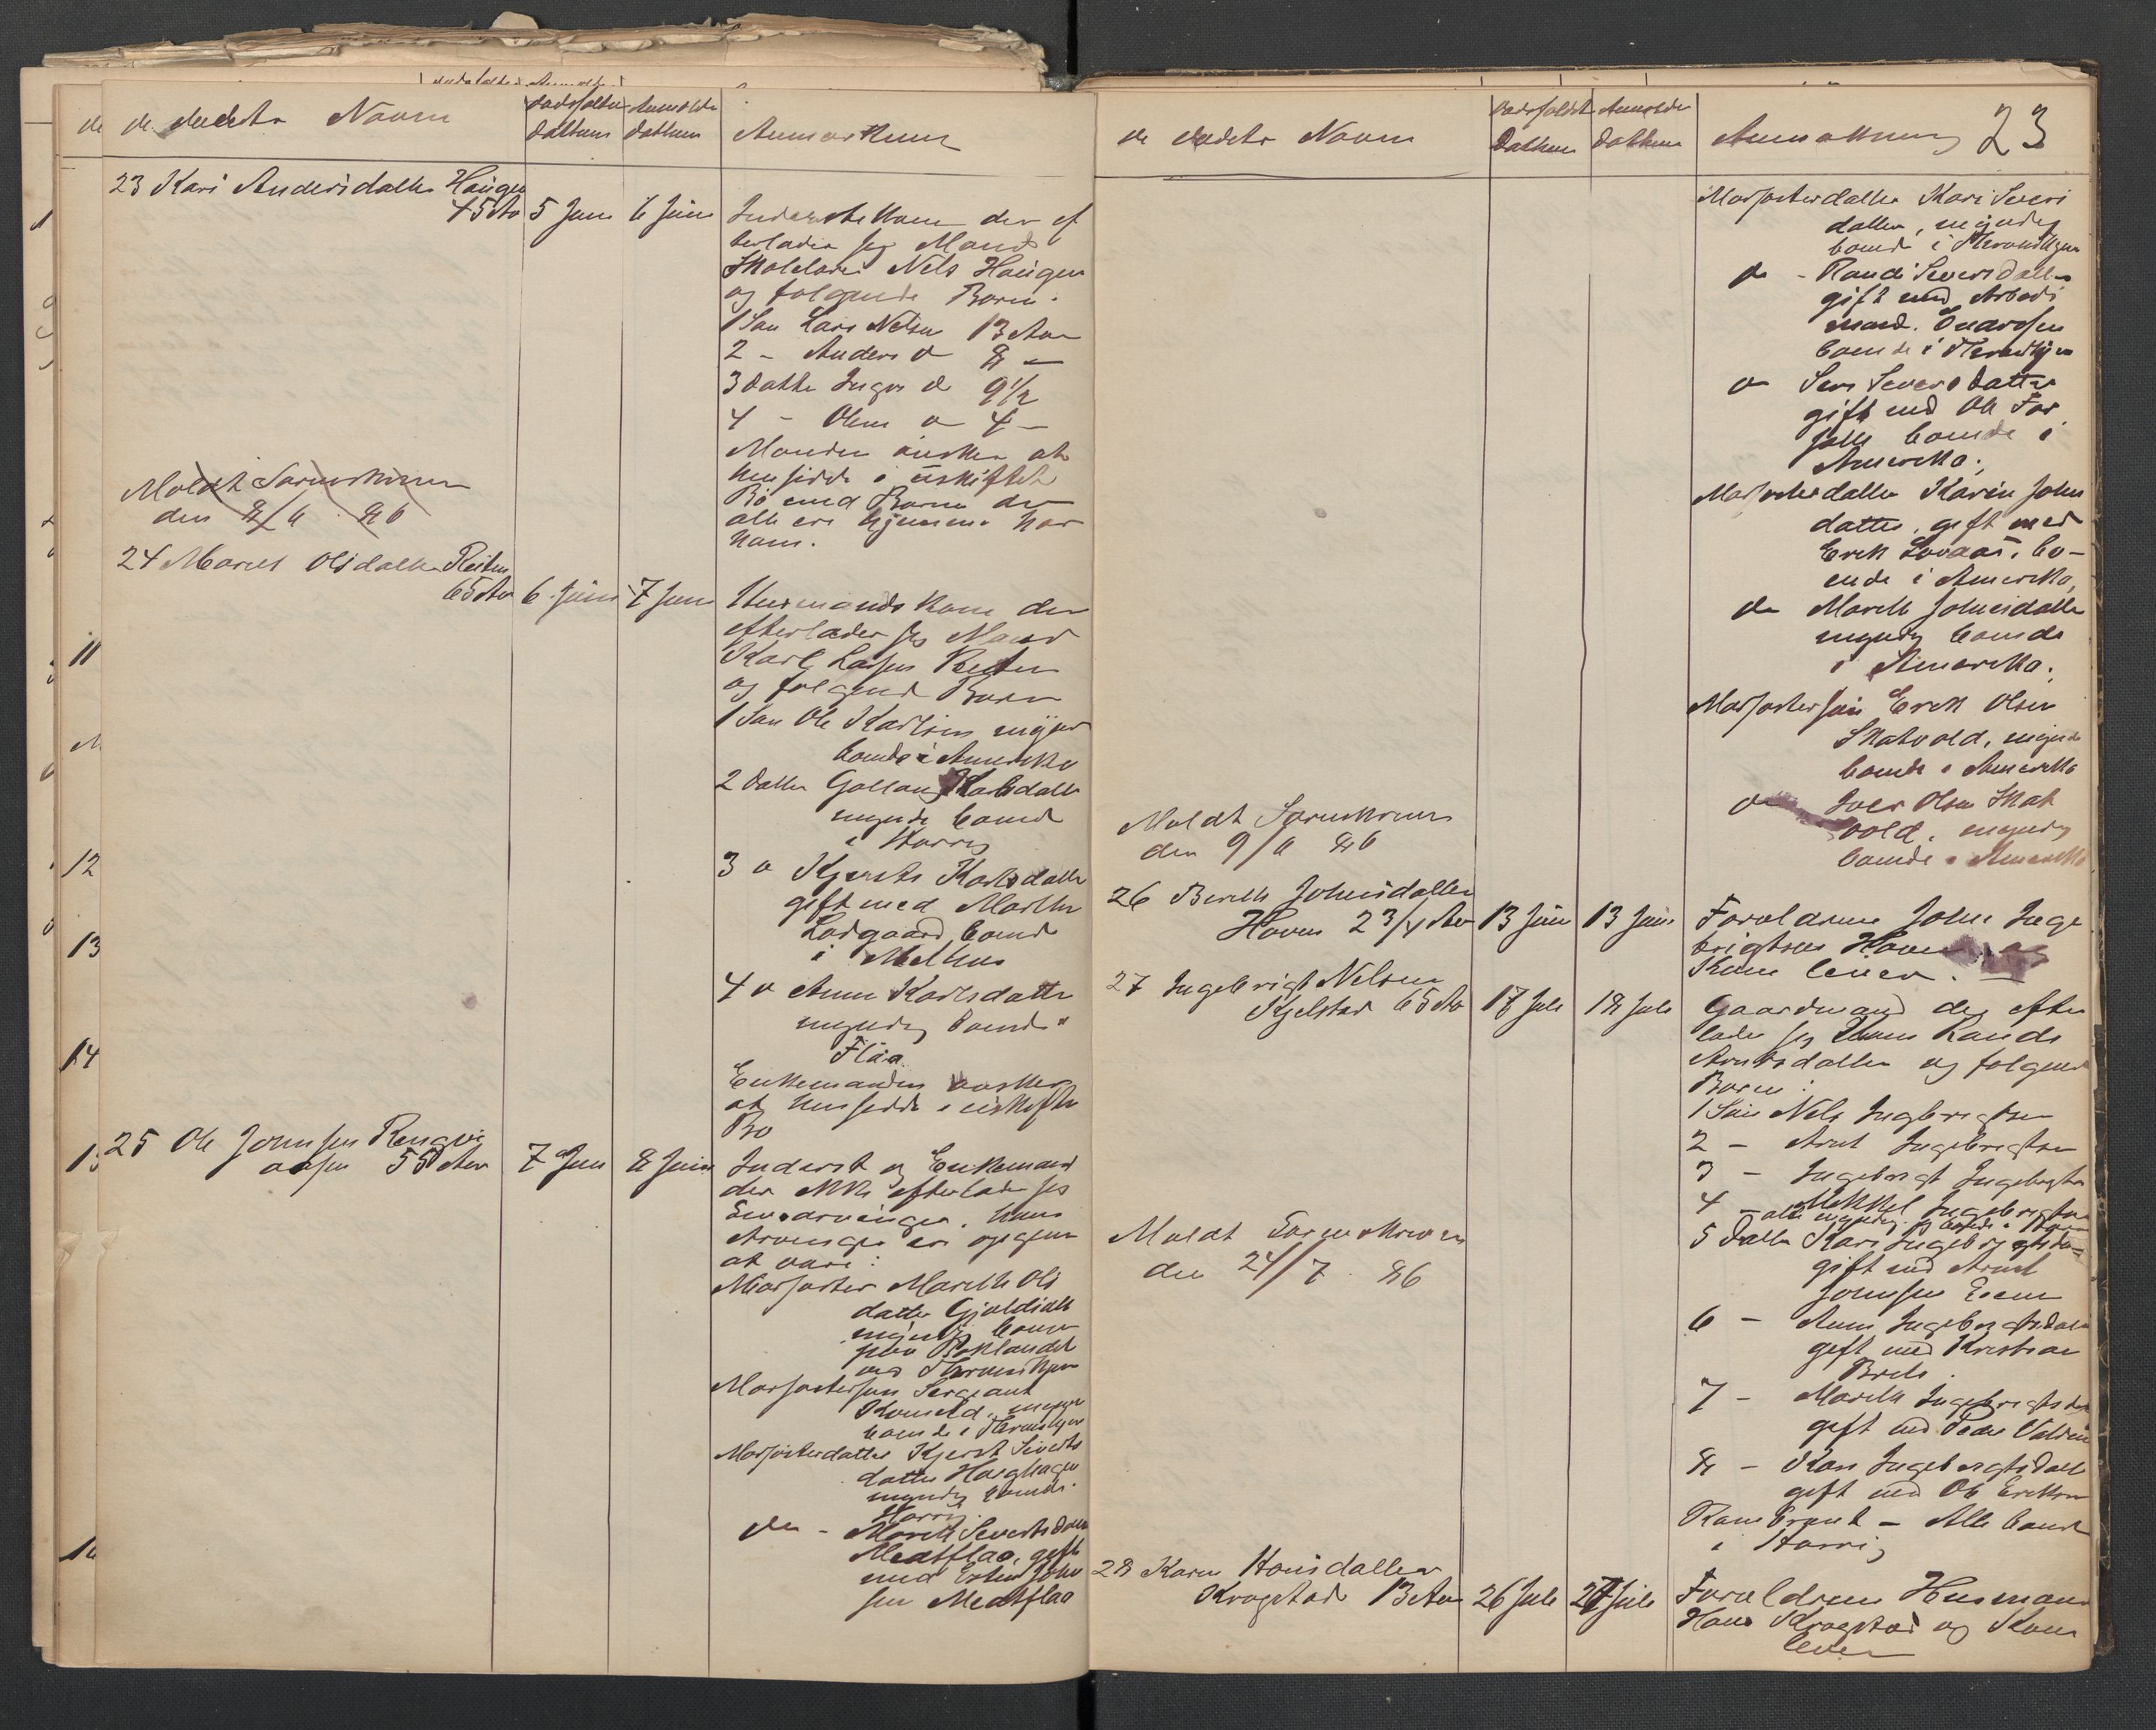 de dødets Navn
dødsfaldets Dathum
Anmeldte Dathum
Anmerkning
23 Kari Andersdatter Haugen
45 Aar 5 Juni 6 Juni
Inderstekone der ef
terlader sig Mand
Skolelærer Nels Haugen
og følgende Børn.
1 Søn Lars Nelsen 13 Aar
2 - Anders d 8 -
3 Datter Inger d 9 1/2
4 - Oline d 4 -
Manden ønsker at
hensidde i uskiftet
Bo med Børn der
alle ere hjemme hos
ham.
Meldt Sorenskriver
den 8/6 86
24 Marit Olsdatter Reiten
65 Aar 6 Juni 7 Juni
Husmandskone der
efterlader sig Mand
Karl Larsen Reiten
og følgende Børn
1 Søn Ole Karlsen myndig
boende i Amerika
2 Datter Gollaug Karlsdatter
myndig boende
i Horrig
3 d Kjersti Karlsdatter
gift med Marthin
Lodgaard boende
i Melhus
4 d Anne Karlsdatter
myndig boende i
Flaa.
Enkemanden ønsker
at hensidde i uskiftet
Bo
25 Ole Johnsen Rengvi
aasen 55 Aar 7 Juni 8 Juni
Inderst og Enkemand
der ikke efterlader sig
Livsarvinger. hans
Arvinger er opgiven
at være:
Morsøster Marith Ols
datter Gjøldialt
myndig boende
paa Baklandet
ved Throndhjem
Morsøstersøn Sergeant
Romeld, myndig
boende i Throndhjem
Morsøsterdatter Kjersti Siverts
datter Haughagen
myndig boende i
Horrig
do - Marit Sivertsdatter
Medtflaa, gift
med Esten John
sen Medtflaa

de dødets Navn
Dødsfaldets Dathum
Anmeldte Dathum
Anmerkning 23
Morsøsterdatter Kari Severs
datter, myndig
boende i Throndhjem
do - Randi Seversdatter
gift med Arbeids
mand Enarssen
boende i Throndhjem
do Seri Seversdatter
gift med Ole For
salle boende i
Amerika.
Morsøsterdatter Karin John
datter, gift med
Erek Lovaas, bo-
ende i Amerika,
do Marith Johnsdatter
myndig boende
i Amerika.
Morsøstersøn Erek Olsen
Skatvold, myndig
boende i Amerika
do Iver Olsen Skat
vold, myndig
boende i Amerika
Meldt Sorenskriver
den 9/6 86
26 Berith Johnsdatter
Hoven 2 3/4 Aar 13 Juni 13 Juni
Forældrene John Inge
brigtsen Hoven og
Kone lever.
27 Ingebrigt Nelsen
Kjelstad 65 Aar 17 Juli 18 Juli
Gaardmand der efter
lader sig Kone Randi
Arntsdatter og følgende
Børn:
1 Søn Nels Ingebrigtsen
2 - Arnt Ingebrigtsen
3 - Ingebrigt Ingebrigtsen
4 - Mekkel Ingebrigtsen
- alle myndig og boende i Horrig
5 Datter Kari Ingebrigtsda-
gift med Arnt
Johnsen Eeen
6 - Anne Ingebrigtsdatter
gift med Kristian
Brek.
7 - Marith Ingebrigtsdat
gift med Peder Valdum
8 - Karen Ingebrigtsdatter
gift med Ole Eriksen
Rambraut - Alle boende
i Horrig
Meldt Sorenskriveren
den 24/7 86
28 Karen Hansdatter
Krogstad 13 Aar 26 Juli 27 Juli
Forældrene Husmand
Hans Krogstad og Kone
lever